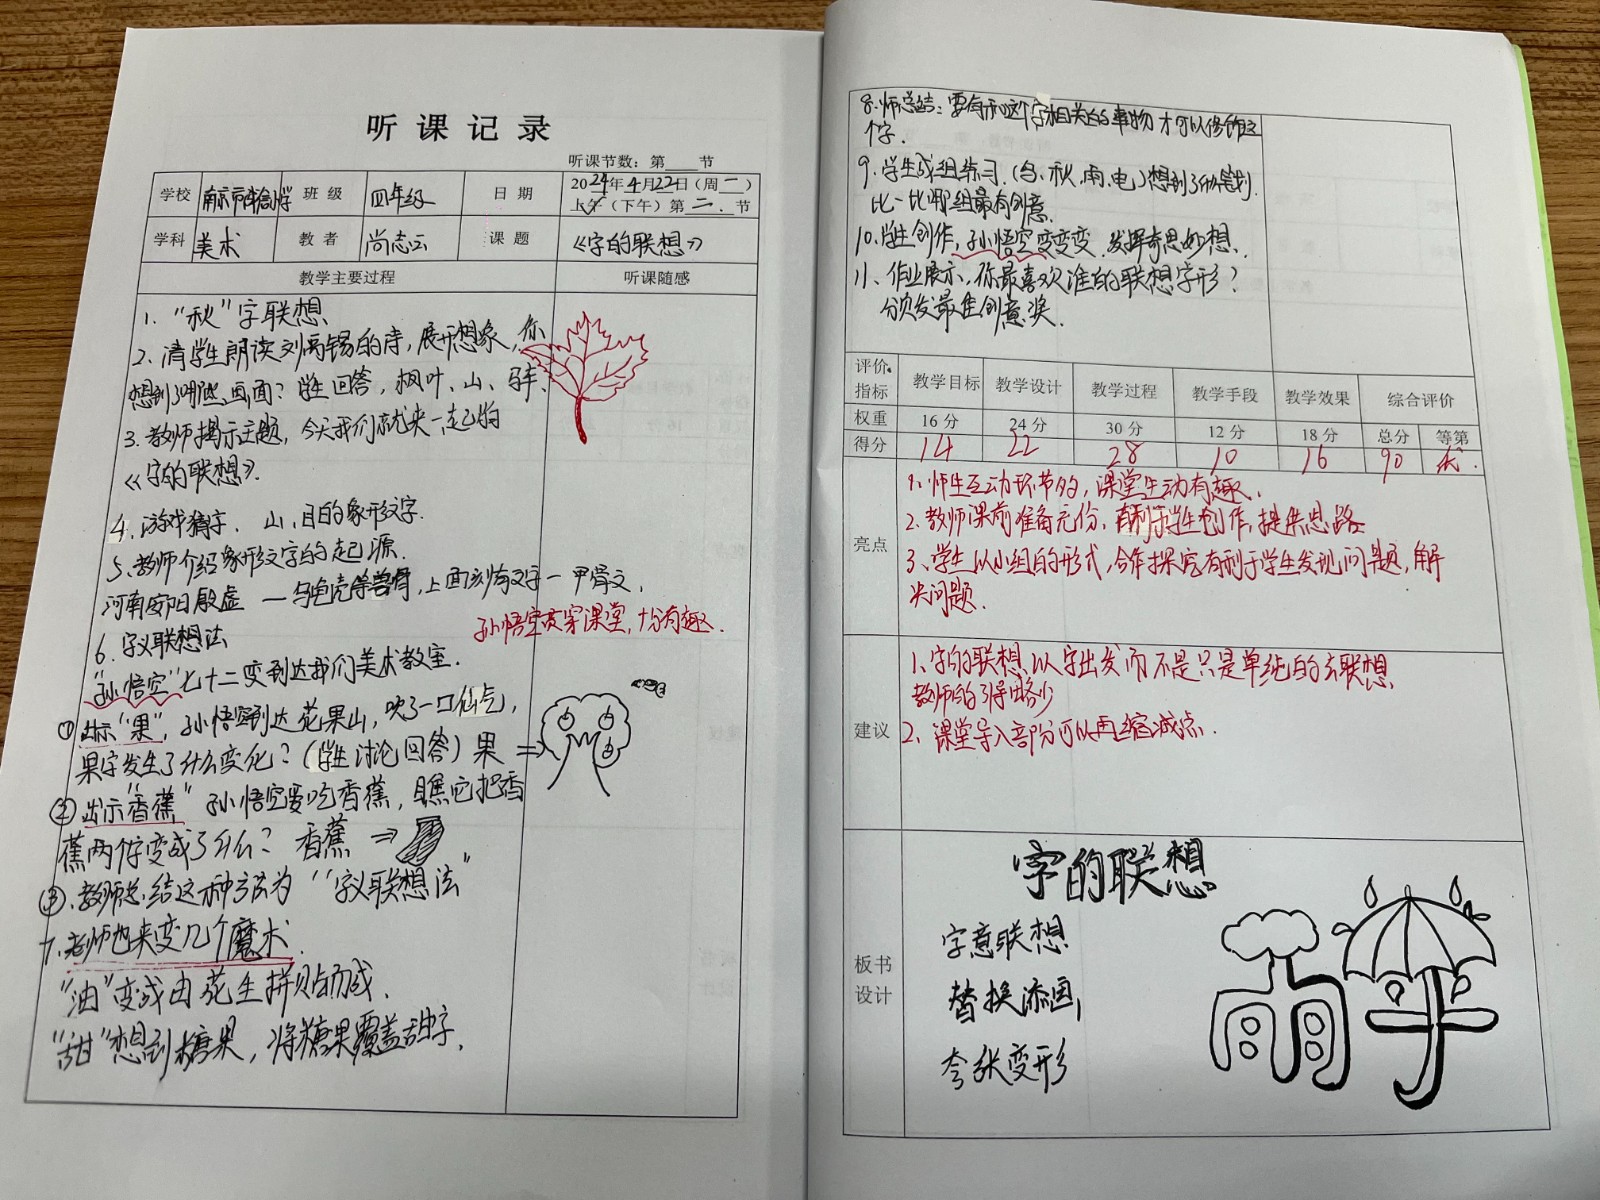 听课记录
听课节数：第 节
学校 南京市 小学 班级 四年级 日期 2024年4月22日（周一）
上午（下午）第二.节
学科 美术 教者 尚志云 课题 《字的联想》
教学主要过程 听课随感
1. “秋”字联想
2. 请学生朗读刘禹锡的诗，展开想象，你
想到了哪些画面？学生回答，枫叶、山、马车、
3. 教师揭示主题，今天我们就来一起的
《字的联想》.
4. 游戏猜字. 山、目的象形汉字.
5、教师介绍象形文字的起源.
河南安阳殷虚 — 乌龟壳等兽骨，上面刻有文字 — 甲骨文，
孙悟空贯穿课堂，十分有趣.
6. 字义联想法
“孙悟空”七十二变到达我们美术教室.
① 出示“果”，孙悟空到达花果山，吹了一口仙气，
果字发生了什么变化？（学生讨论回答）果 ⇒
② 出示“香蕉” 孙悟空爱吃香蕉，瞧它把香
蕉两个字变成了什么？ 香蕉 ⇒
③. 教师总结这种方法为“字义联想法”
7. 老师也来变几个魔术.
“油”变成由花生拼贴而成.
“甜”想到糖果，将糖果覆盖甜字.
8. 师总结：要有和这个字相关的事物才可以修饰这
个字.
9. 学生成组练习.（鸟、秋、雨、电）想到了 .
比一比哪组最有创意.
10. 学生创作，孙悟空变变变. 发挥奇思妙想.
11、作业展示，你最喜欢谁的联想字形？
颁发最佳创意奖.
评价指标 教学目标 教学设计 教学过程 教学手段 教学效果 综合评价
权重 16分 24分 30分 12分 18分 总分 等第
得分 14 22 28 10 16 90 优.
亮点
1. 师生互动环节多，课堂生动有趣.
2. 教师课前准备充份，有利于学生创作，提供思路
3、学生以小组的形式，合作探究有利于学生发现问题，解
决问题.
建议
1、字的联想，以字出发而不是只是单纯的去联想，
教师的引导略少
2、课堂导入部分可以再缩减点.
板书设计
字的联想
字意联想
替换添画
夸张变形
雨伞